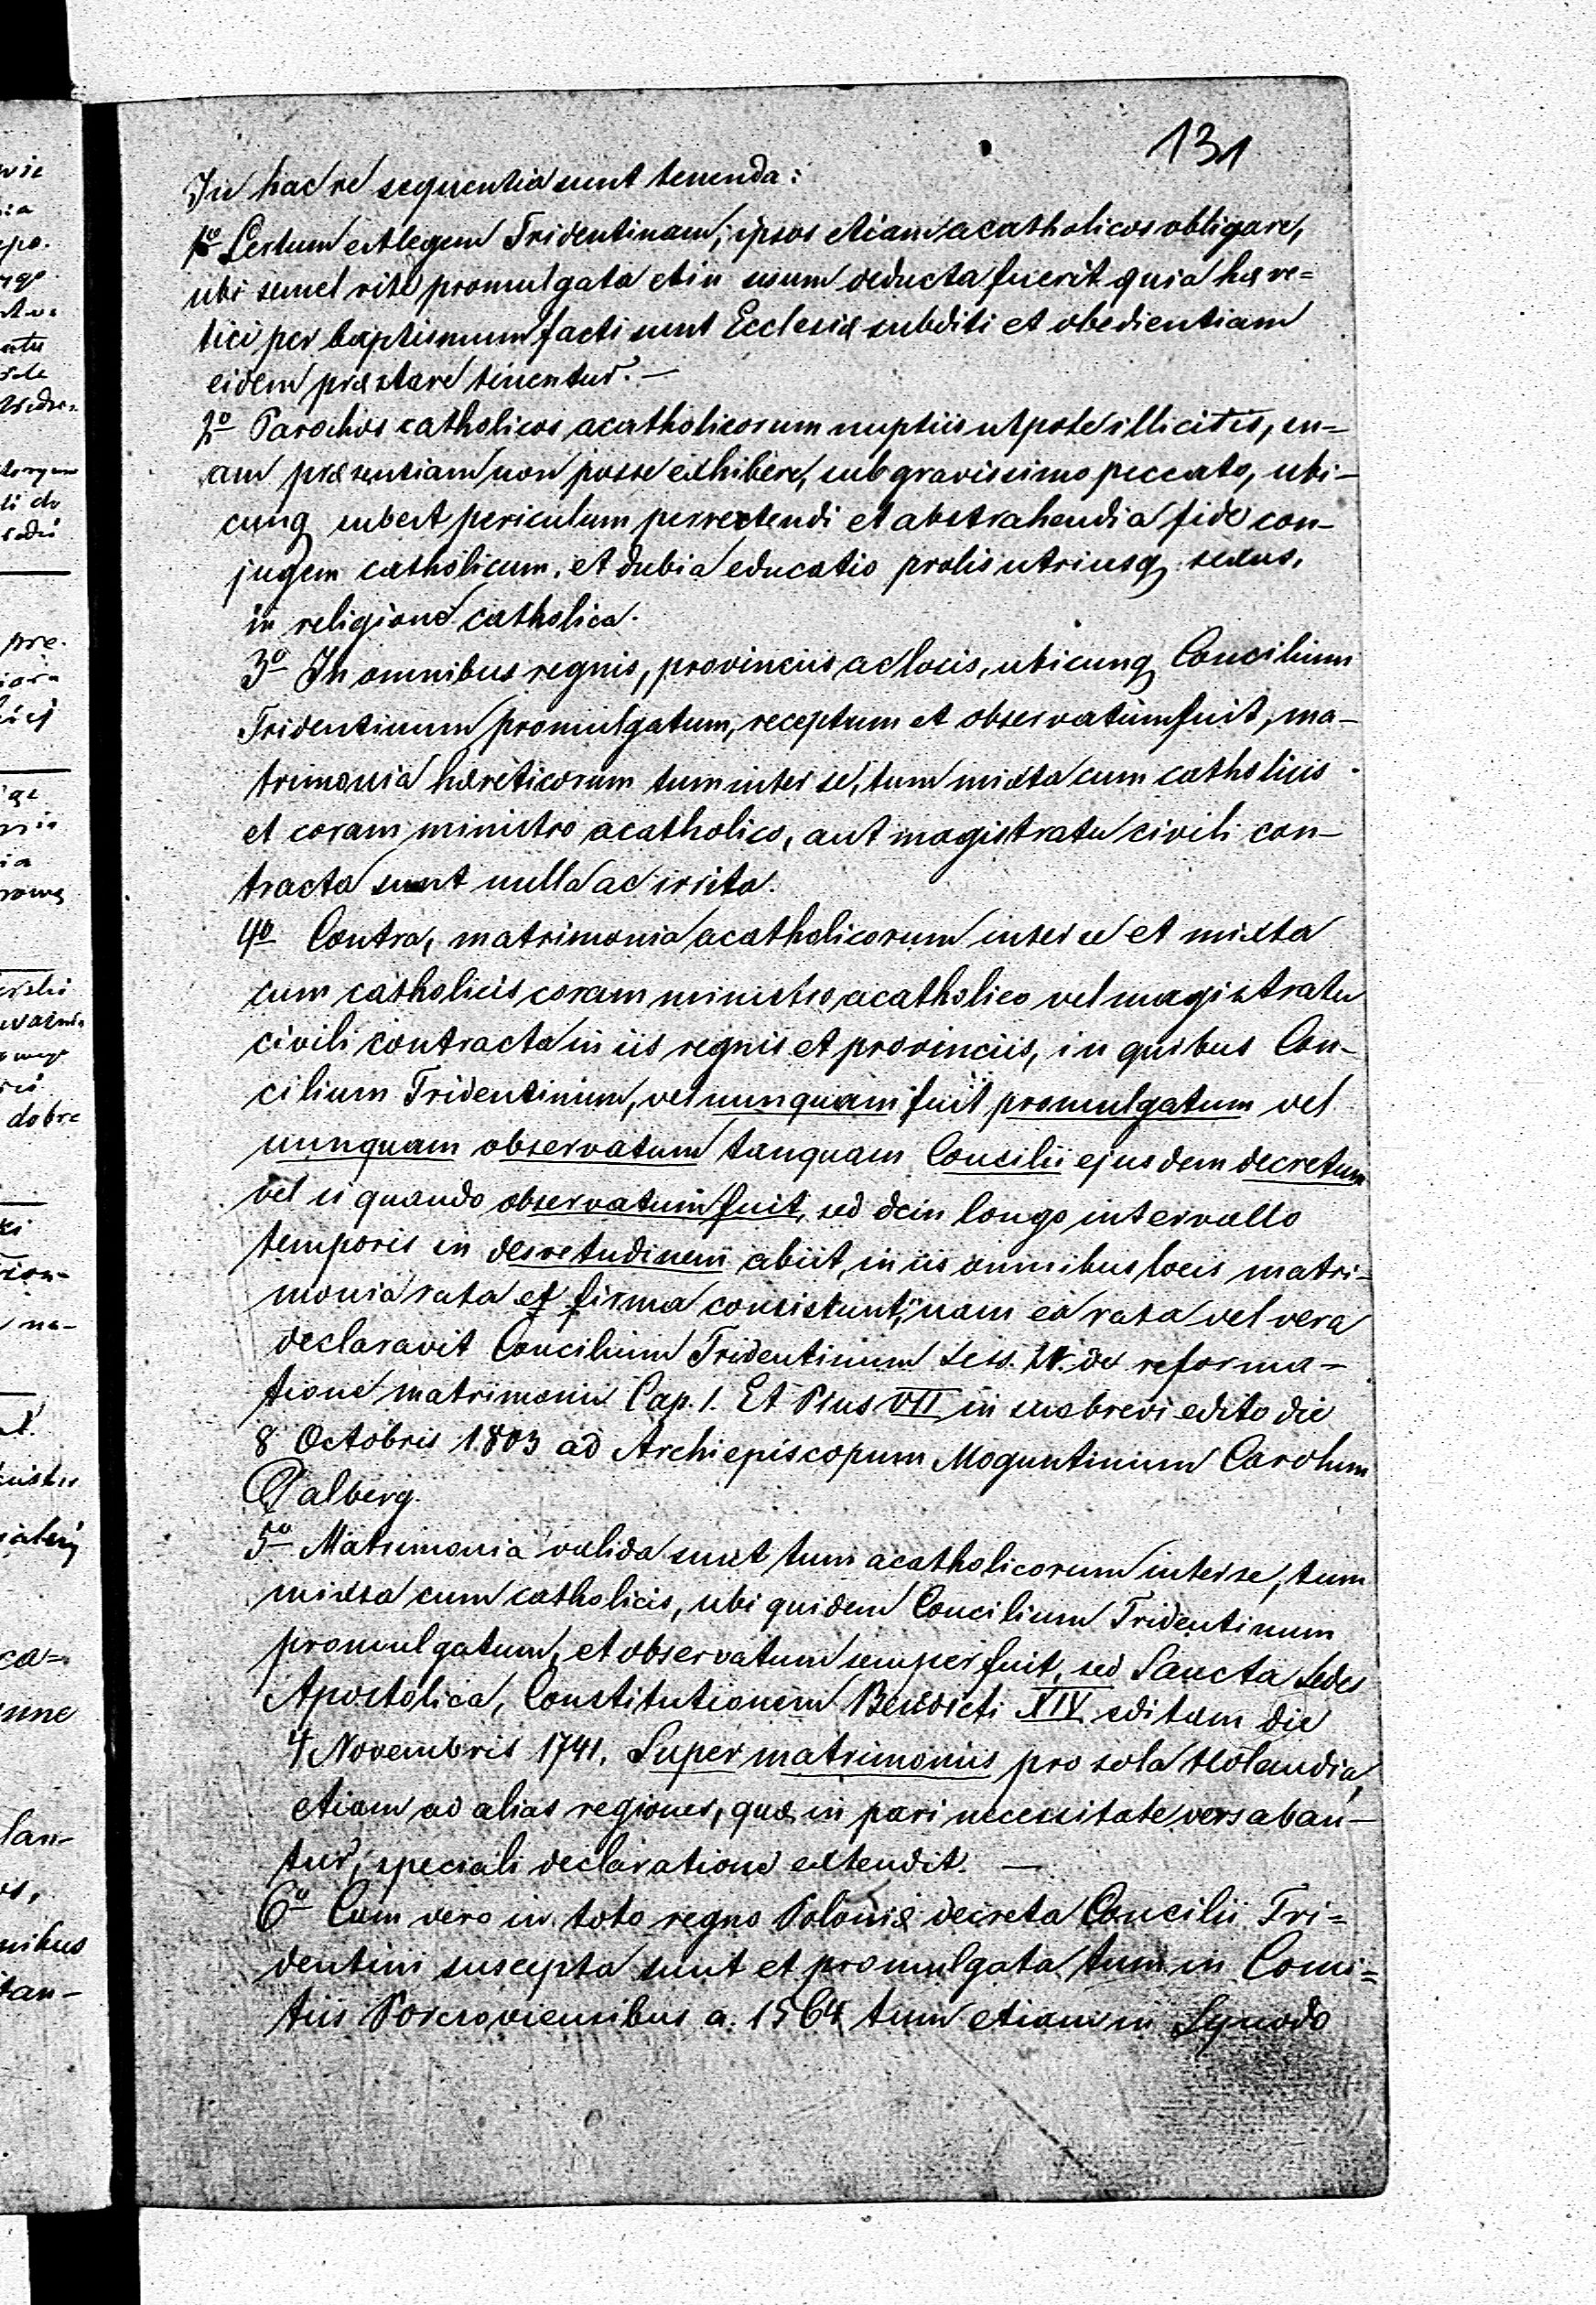 131
In hac re sequentia sunt tenenda:
1o Certum est legem Tridentinam, ipsos etiam acatholicos obligare,
ubi semel rite promulgata et in usum deducta fuerit quia hære=
tici per baptismum facti sunt Ecclesiæ subditi et obedientiam
eidem præstare tenentur. —
2o Parochos catholicos acatholicorum nuptiis utpote illicitis, su=
am præsentiam non posse exhibere, sub gravissimo peccato, ubi-
cunq subest periculum pervertendi et abstrahendi a fide con-
jugem catholicum, et dubia educatio prolis utriusq sexus,
in religione catholica.
3o In omnibus regnis, provinciis ac locis, ubicunq Concilium
Tridentinum promulgatum, receptum et observatum fuit, ma-
trimonia hæreticorum tum inter se, tum mixta cum catholicis
et coram ministro acatholico, aut magistratu civili con-
tracta sunt nulla ac irrita.
4o Contra, matrimonia acatholicorum inter se et mixta
cum catholicis coram ministro acatholico vel magistratu
civili contracta in iis regnis et provinciis, in quibus Con-
cilium Tridentinum, vel nunquam fuit promulgatum vel
nunquam observatum tanquam Concilii ejusdem decretum
vel si quando observatum fuit, sed dein longo intervallo
temporis in desvetudinem abiit, in iis omnibus locis matri-
monia rata et firma consistunt, nam ea rata vel vera
declaravit Concilium Tridentinum Sess. de reforma-
tione matrimonii Cap. 1. Et Pius VII in suo brevi edito die
8 Octobris 1803 ad Archiepiscopum Moguntinum Carolum
Dalberg.
5o Matrimonia valida sunt tum acatholicorum inter se, tum
mixta cum catholicis, ubi quidem Concilium Tridentinum
promulgatum, et observatum semper fuit, sed Sancta Sedes
Apostolica, Constitutionem Benedicti XIV editam die
4 Novembris 1741. Super matrimoniis pro sola Holandia,
etiam ad alias regiones, quæ in pari necessitate versaban-
tur, speciali declaratione extendit. —
6o Cum vero in toto regno Poloniæ decreta Concilii Tri=
dentini suscepta sunt et promulgata tum in Comi=
tiis Parczoviensibus a. 1564 tum etiam in Synodo